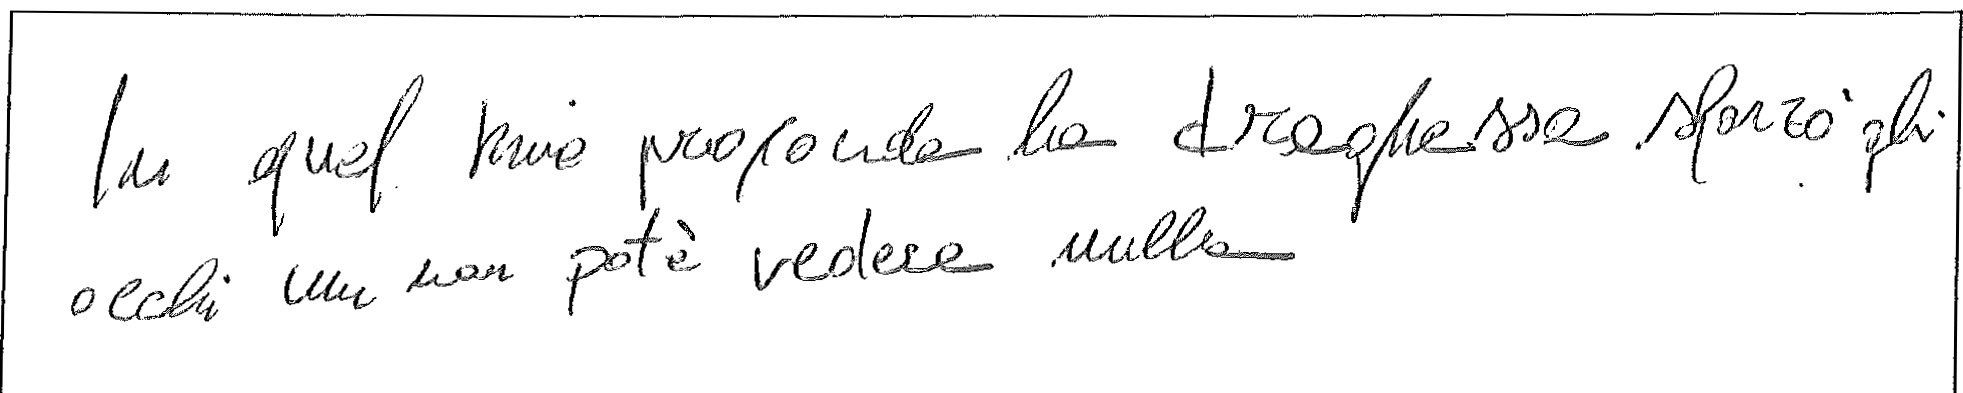 In quel buio profonda la draghessa sforzò gli
occhi ma non potè vedere nulla